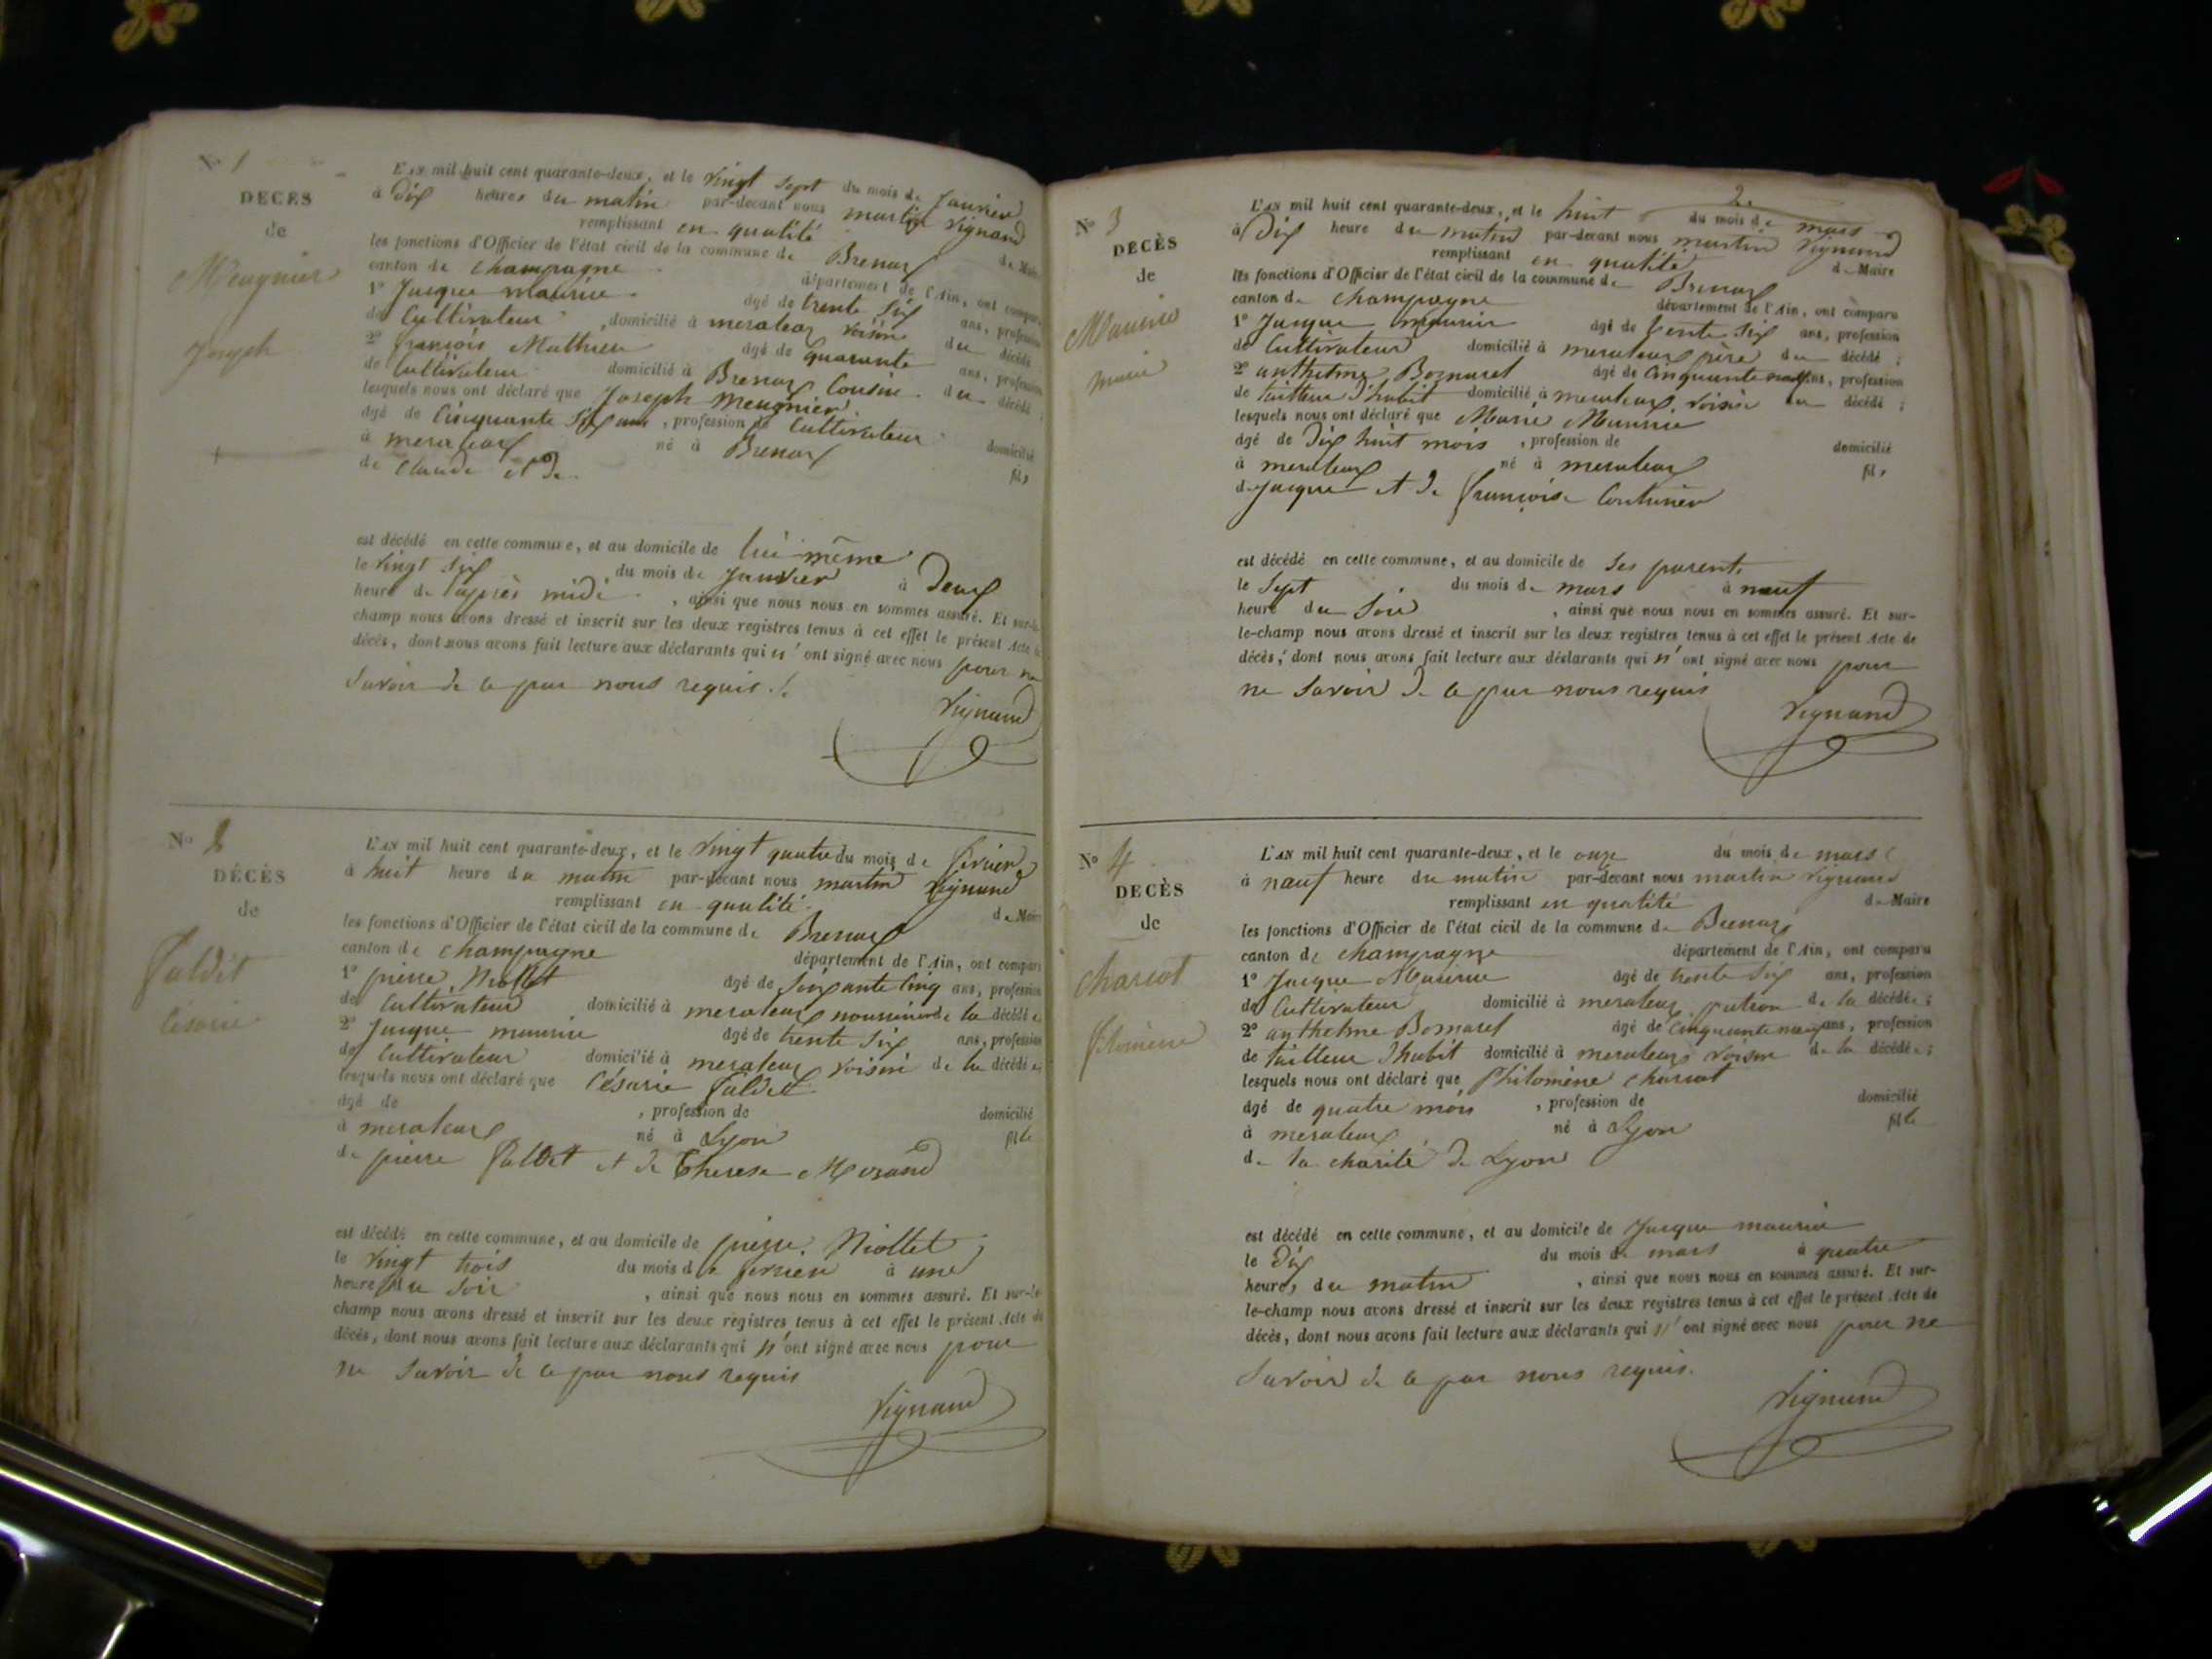 N° 1
DECÈS
de
Meugnier
Joseph
L'AN mil huit cent quarante-deux, et le vingt sept du mois de Janvier
à dix heures du matin par-devant nous martin Vignand
remplissant en qualité de Maire
les fonctions d'Officier de l'état civil de la commune de Brenaz
canton de champagne département de l'Ain, ont comparu
1° Jacque maurin âgé de trente six ans, profession
de Cultivateur, domicilié à merateaz voisin du décédé
2° françois Mathieu âgé de quarante ans, profession
de Cultivateur domicilié à Brenaz Cousin du décédé;
lesquels nous ont déclaré que Joseph Meugnier
âgé de Cinquante six ans, profession de Cultivateur domicilié
à merateaz né à Brenaz fils
de Claude et de
est décédé en cette commune, et au domicile de lui même
le vingt six du mois de Janvier à Deux
heure de l'après midi, ainsi que nous nous en sommes assuré. Et sur-le-
champ nous avons dressé et inscrit sur les deux registres tenus à cet effet le présent Acte de
décès, dont nous avons fait lecture aux déclarants qui n'ont signé avec nous pour ne
Savoir de ce par nous requis./.
Vignand
N° 2
DÉCÈS
de
Césarie
L'AN mil huit cent quarante-deux, et le vingt quatre du mois de février
à huit heure du matin par-devant nous martin Vignand
remplissant en qualité de Maire
les fonctions d'Officier de l'état civil de la commune de Brenaz
canton de champagne département de l'Ain, ont comparu
1° pierre Niollet âgé de Soixante Cinq ans, profession
de Cultivateur domicilié à merateaz de la décédée
2° Jacque maurin âgé de trente six ans, profession
de Cultivateur domicilié à merateaz voisin de la décédée
lesquels nous ont déclaré que Césarie
âgé de , profession de domicilié
à merateaz né à Lyon fille
de pierre et de Therese Morand
est décédé en cette commune, et au domicile de pierre Niollet
le vingt trois du mois de fevrier à une
heure du Soir, ainsi que nous nous en sommes assuré. Et sur-le-
champ nous avons dressé et inscrit sur les deux registres tenus à cet effet le présent Acte de
décès, dont nous avons fait lecture aux déclarants qui n'ont signé avec nous pour
ne Savoir de ce par nous requis
Vignand
2e
N° 3
DECÈS
de
Maurin
marie
L'AN mil huit cent quarante-deux, et le huit du mois de mars
à Dix heure du matin par-devant nous martin Vignand
remplissant en qualité de Maire
les fonctions d'Officier de l'état civil de la commune de Brenaz
canton de champagne département de l'Ain, ont comparu
1° Jacque maurin âgé de trente six ans, profession
de Cultivateur domicilié à merateaz père du décédé;
2° anthelme Bornarel âgé de Cinquante neuf ans, profession
de tailleur d'habit domicilié à merateaz voisin du décédé;
lesquels nous ont déclaré que Marie Maurin
âgé de Dix huit mois, profession de domicilié
à merateaz né à merateaz fils
de Jacque et de françoise Couturier
est décédé en cette commune, et au domicile de Ses parents
le Sept du mois de mars à neuf
heure du Soir, ainsi que nous nous en sommes assuré. Et sur-
le-champ nous avons dressé et inscrit sur les deux registres tenus à cet effet le présent Acte de
décès, dont nous avons fait lecture aux déclarants qui n'ont signé avec nous pour
ne Savoir de ce par nous requis
Vignand
N° 4
DECÈS
de
Charcot
filomène
L'AN mil huit cent quarante-deux, et le onze du mois de mars
à neuf heure du matin par-devant nous martin Vignand
remplissant en qualité de Maire
les fonctions d'Officier de l'état civil de la commune de Brenaz
canton de champagne département de l'Ain, ont comparu
1° Jacque Maurin âgé de trente Six ans, profession
de Cultivateur domicilié à merateaz patron de la décédée;
2° anthelme Bornarel âgé de Cinquante neuf ans, profession
de tailleur d'habit domicilié à merateaz voisin de la décédée;
lesquels nous ont déclaré que Philomène Charcot
âgé de quatre mois, profession de domicilié
à merateaz né à Lyon fille
de la charité de Lyon
est décédé en cette commune, et au domicile de Jacque maurin
le Dix du mois de mars à quatre
heures du matin, ainsi que nous nous en sommes assuré. Et sur-
le-champ nous avons dressé et inscrit sur les deux registres tenus à cet effet le présent Acte de
décès, dont nous avons fait lecture aux déclarants qui n'ont signé avec nous pour ne
Savoir de ce par nous requis.
Vignand